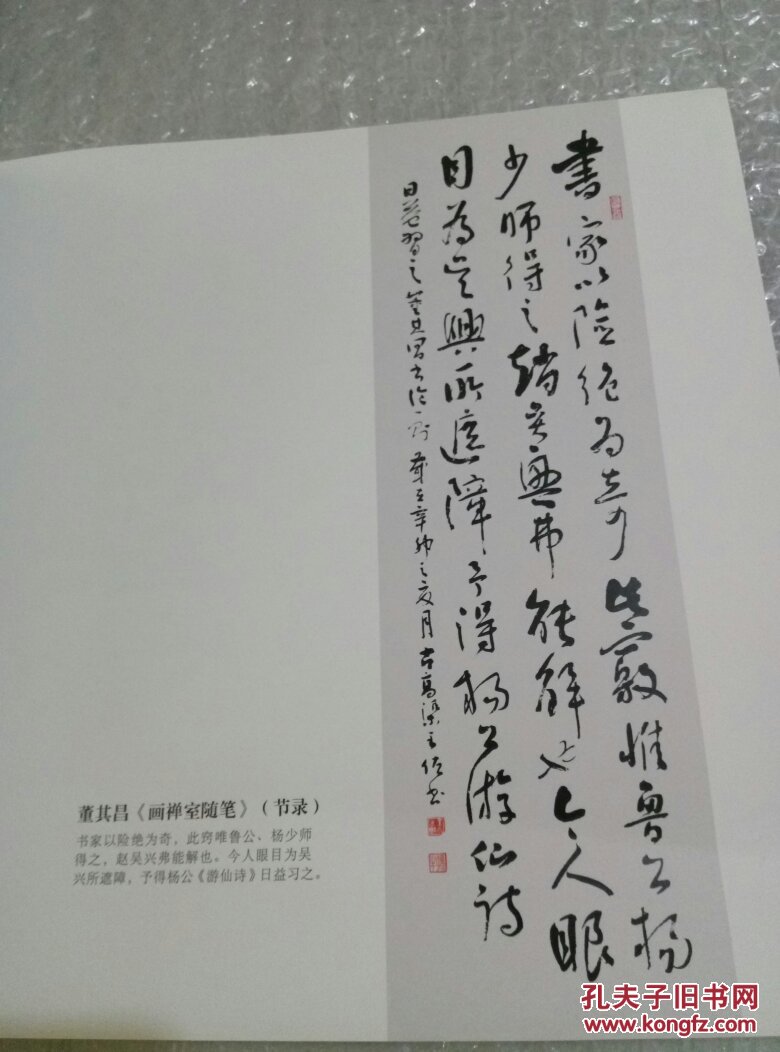 書家以險絕為奇此竅惟魯公楊
少師得之趙吳興弗能解也今人眼
目為吳興所遮障予得楊公游仙詩
日益習之董其昌書論一則歲在辛卯之夏月古高梁
董其昌《画禅室随笔》（节录）
书家以险绝为奇，此窍唯鲁公、杨少师
得之，赵吴兴弗能解也。今人眼目为吴
兴所遮障，予得杨公《游仙诗》日益习之。
孔夫子旧书网
www.kongfz.com